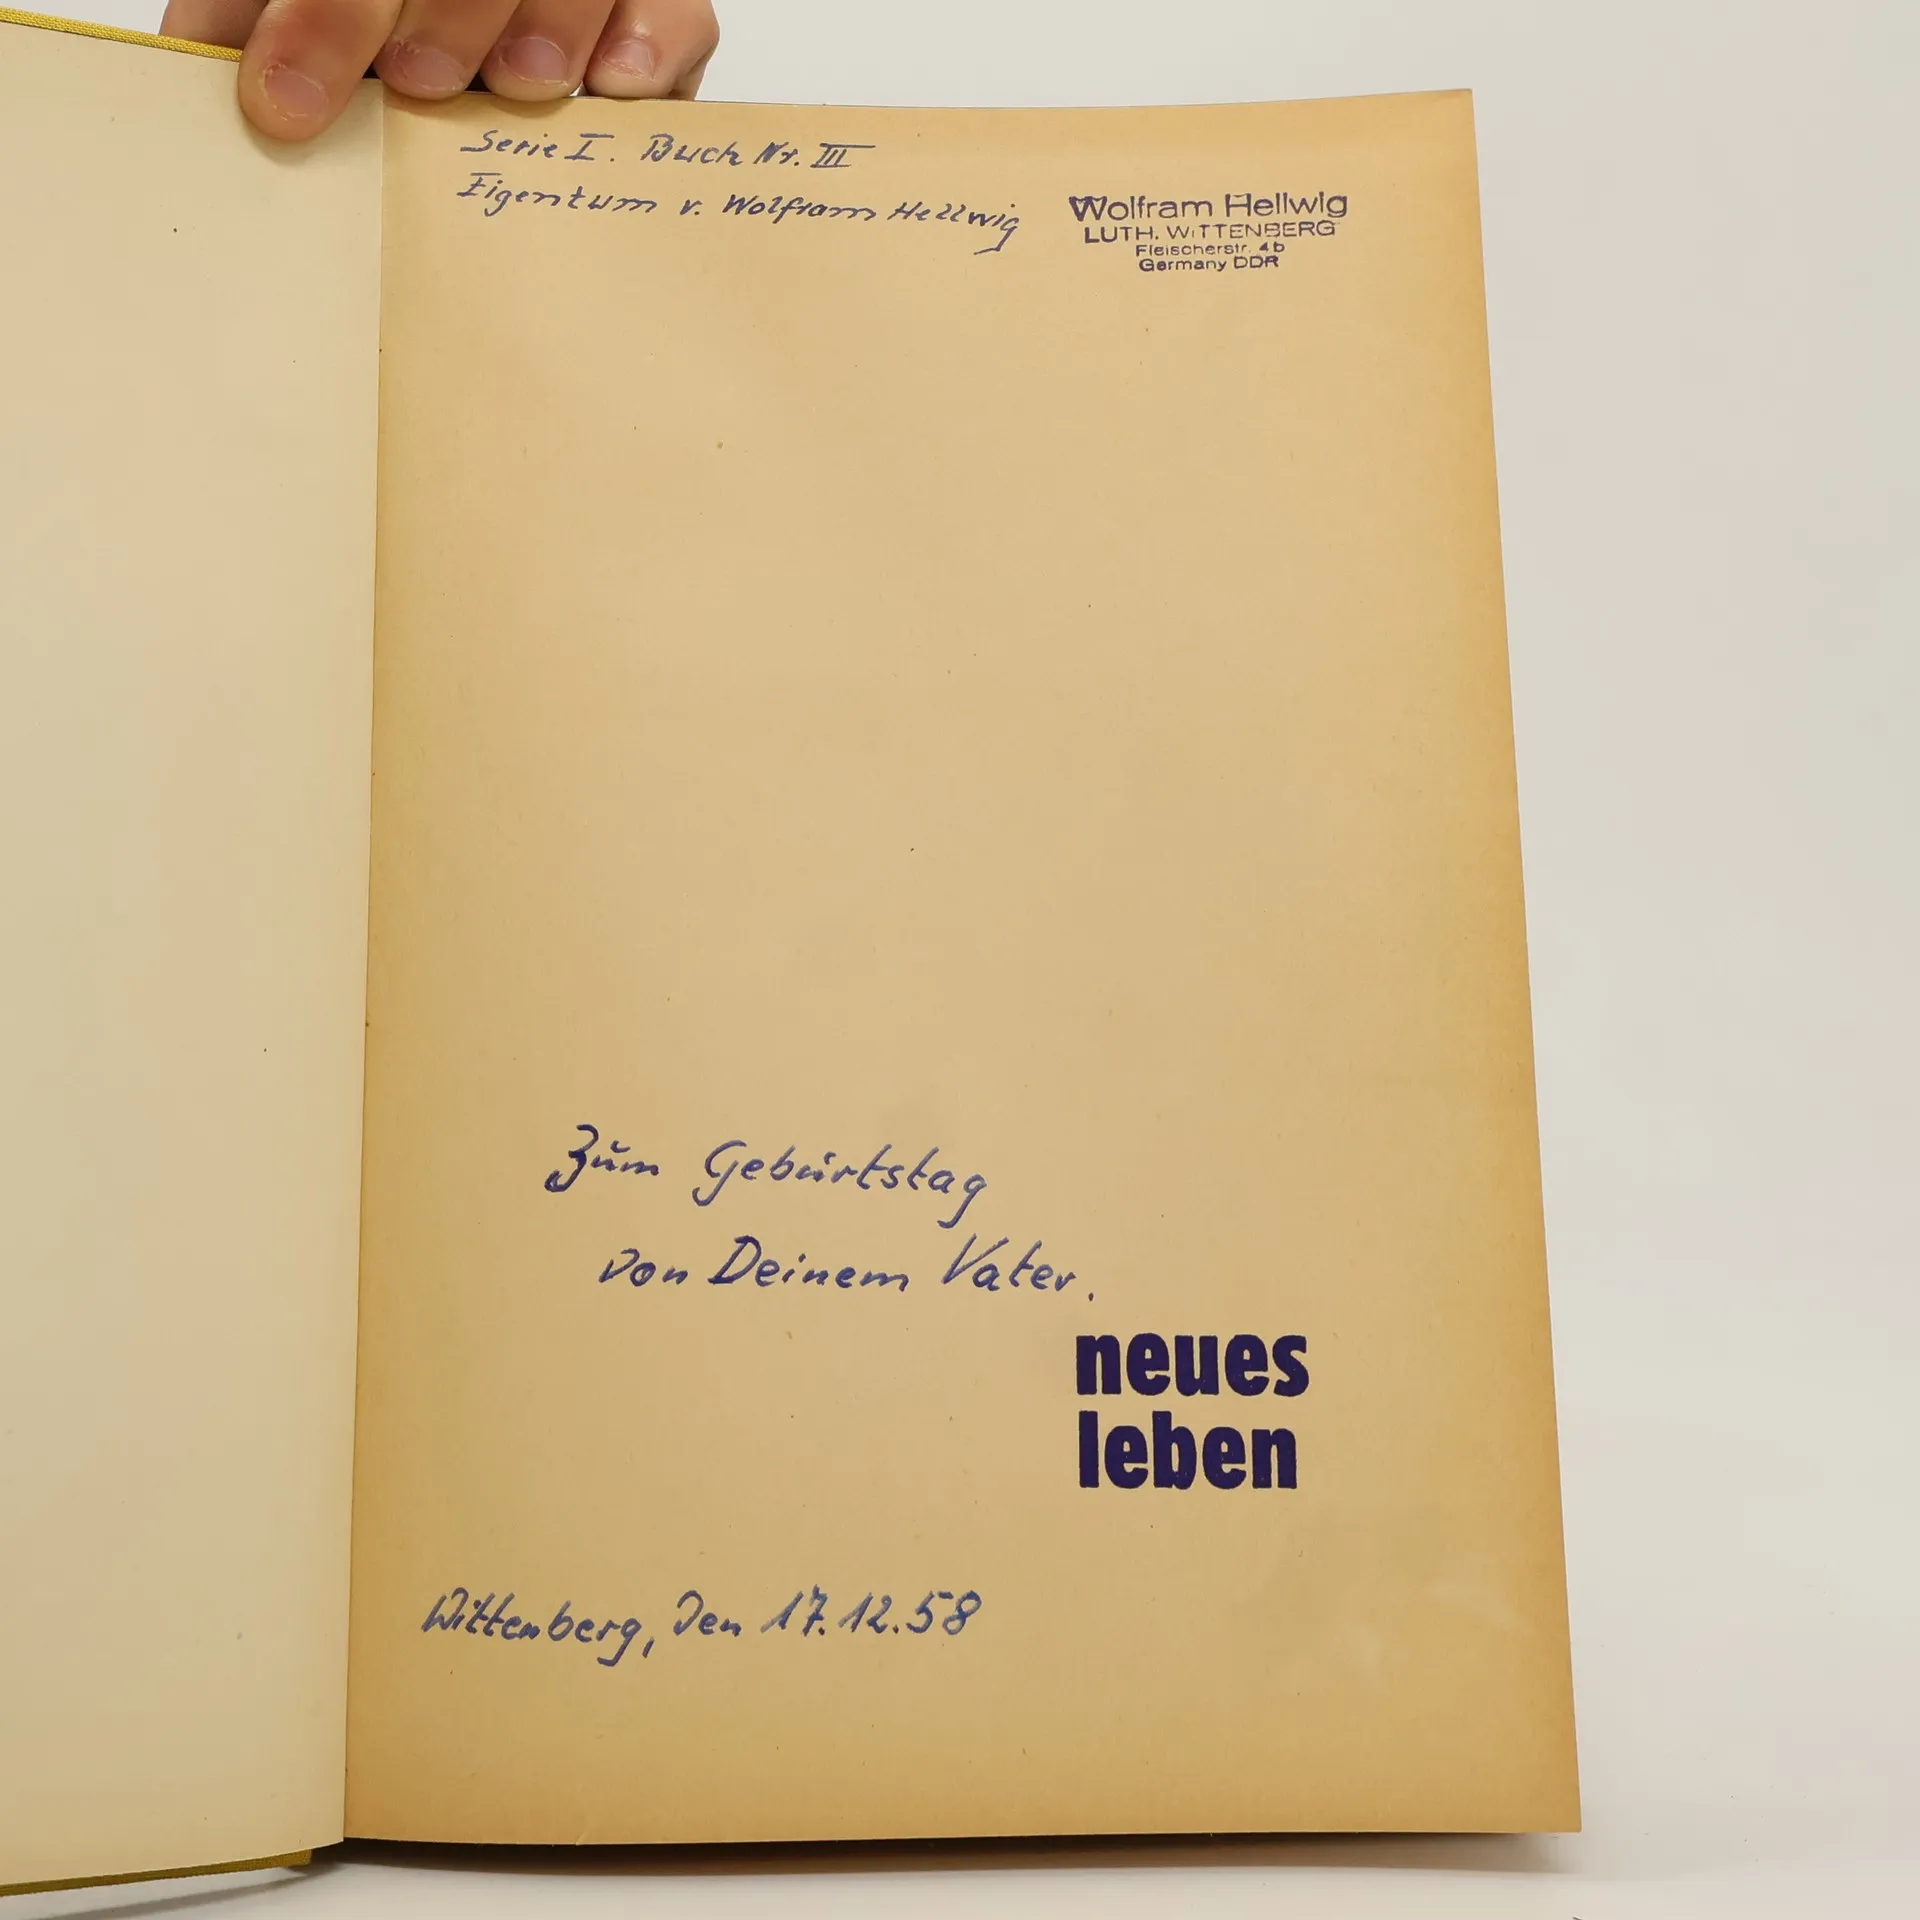 Serie I. Buch Nr. III
Eigentum v. Wolfram Hellwig
Wolfram Hellwig
LUTH. WITTENBERG
Fleischerstr. 4b
Germany DDR
Zum Geburtstag
von Deinem Vater.
neues
leben
Wittenberg, den 17.12.58